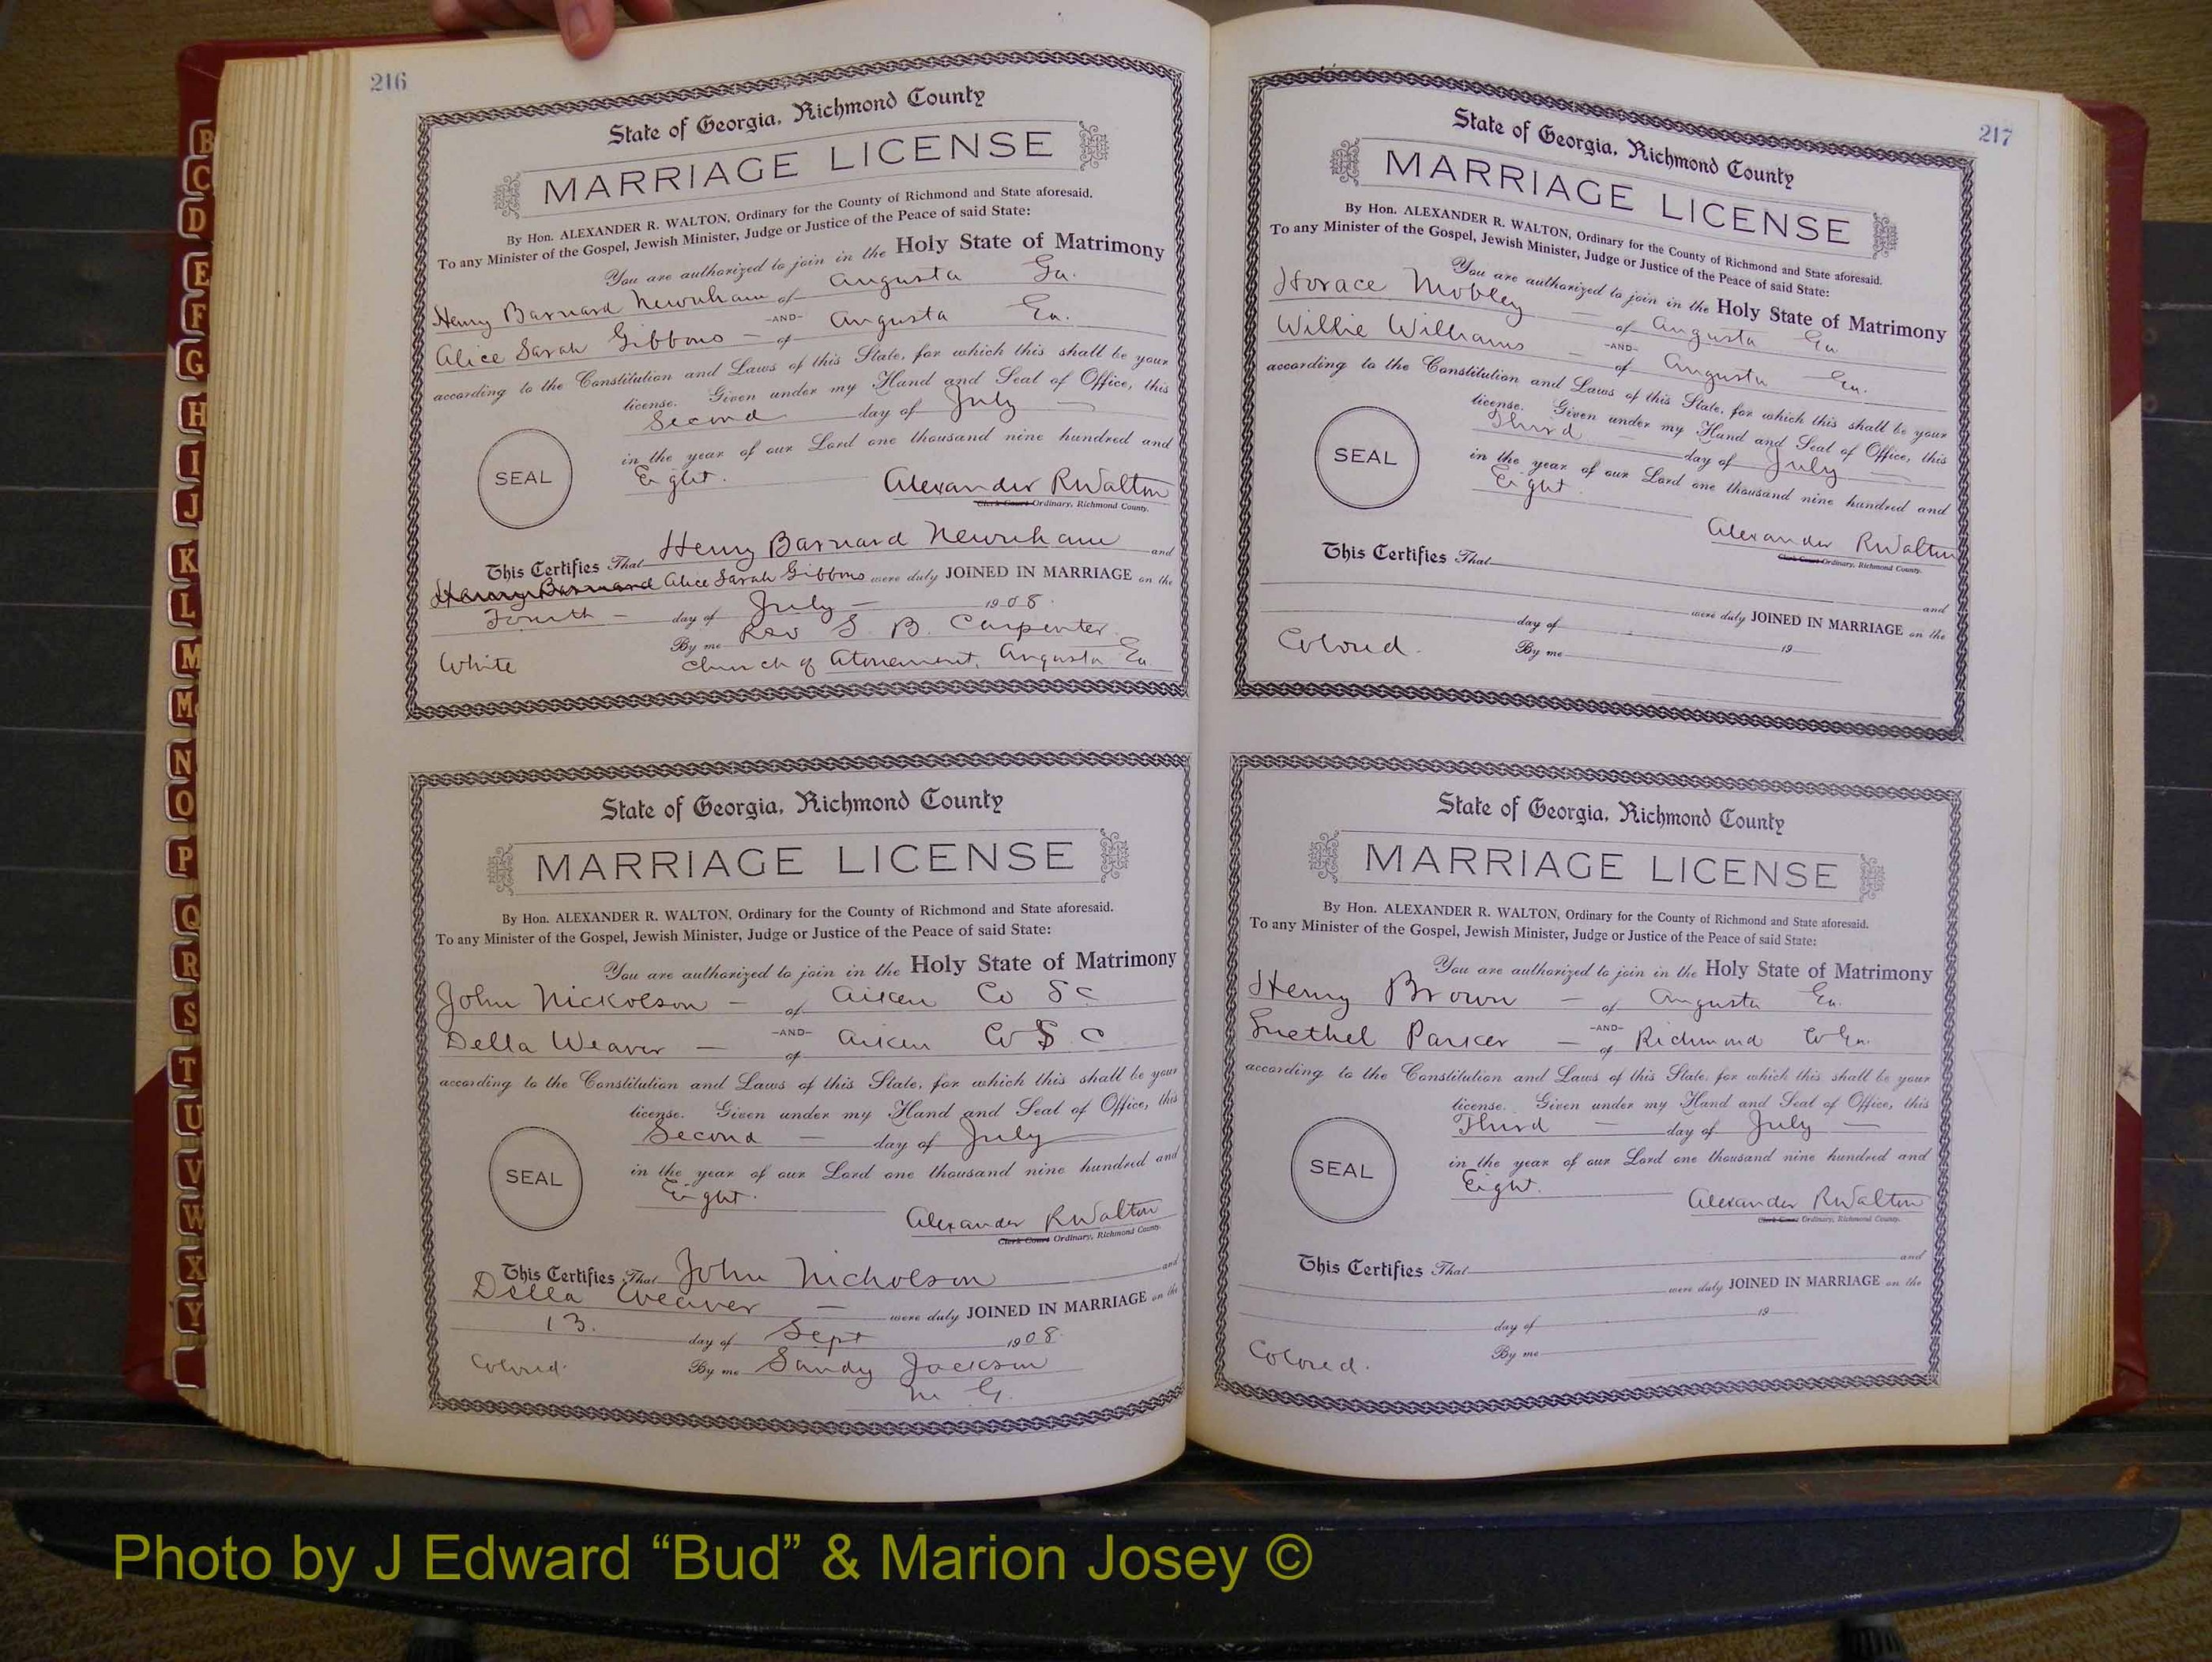 216
State of Georgia, Richmond County
MARRIAGE LICENSE
By Hon. ALEXANDER R. WALTON, Ordinary for the County of Richmond and State aforesaid.
To any Minister of the Gospel, Jewish Minister, Judge or Justice of the Peace of said State:
You are authorized to join in the Holy State of Matrimony
Henry Barnard Newnham of Augusta Ga.
-AND-
Alice Sarah Gibbons - of Augusta Ga.
according to the Constitution and Laws of this State, for which this shall be your
license. Given under my Hand and Seal of Office, this
Second day of July
in the year of our Lord one thousand nine hundred and
SEAL
Eight.
Alexander R Walton
Clerk Court Ordinary, Richmond County.
This Certifies That Henry Barnard Newnham and
Henry Barnard Alice Sarah Gibbons were duly JOINED IN MARRIAGE on the
Fourth - day of July - 1908.
By me Rev S. B. Carpenter.
White Church of Atonement, Augusta Ga.
State of Georgia, Richmond County
MARRIAGE LICENSE
By Hon. ALEXANDER R. WALTON, Ordinary for the County of Richmond and State aforesaid.
To any Minister of the Gospel, Jewish Minister, Judge or Justice of the Peace of said State:
You are authorized to join in the Holy State of Matrimony
John Nickolson - of Aiken Co S C
-AND-
Della Weaver - of Aiken Co S. C
according to the Constitution and Laws of this State, for which this shall be your
license. Given under my Hand and Seal of Office, this
Second - day of July
in the year of our Lord one thousand nine hundred and
SEAL
Eight.
Alexander R Walton
Clerk Court Ordinary, Richmond County.
This Certifies That John Nicholson and
Della Weaver - were duly JOINED IN MARRIAGE on the
13. day of Sept 1908.
Colored. By me Sandy Jackson
M. G.
217
State of Georgia, Richmond County
MARRIAGE LICENSE
By Hon. ALEXANDER R. WALTON, Ordinary for the County of Richmond and State aforesaid.
To any Minister of the Gospel, Jewish Minister, Judge or Justice of the Peace of said State:
You are authorized to join in the Holy State of Matrimony
Horace Mobley - of Augusta Ga
-AND-
Willie Williams - of Augusta Ga.
according to the Constitution and Laws of this State, for which this shall be your
license. Given under my Hand and Seal of Office, this
Third - day of July
in the year of our Lord one thousand nine hundred and
SEAL
Eight
Alexander R Walton
Clerk Court Ordinary, Richmond County.
This Certifies That
and
were duly JOINED IN MARRIAGE on the
day of 19
Colored. By me
State of Georgia, Richmond County
MARRIAGE LICENSE
By Hon. ALEXANDER R. WALTON, Ordinary for the County of Richmond and State aforesaid.
To any Minister of the Gospel, Jewish Minister, Judge or Justice of the Peace of said State:
You are authorized to join in the Holy State of Matrimony
Henry Brown - of Augusta Ga.
-AND-
Luethel Parker - of Richmond Co Ga.
according to the Constitution and Laws of this State, for which this shall be your
license. Given under my Hand and Seal of Office, this
Third - day of July -
in the year of our Lord one thousand nine hundred and
SEAL
Eight.
Alexander R Walton
Clerk Court Ordinary, Richmond County.
This Certifies That and
were duly JOINED IN MARRIAGE on the
day of 19
Colored. By me
B
C
D
E
F
G
H
I
J
K
L
M
Mc
N
O
P
Q
R
S
T
U
V
W
X
Y
Photo by J Edward “Bud” & Marion Josey ©